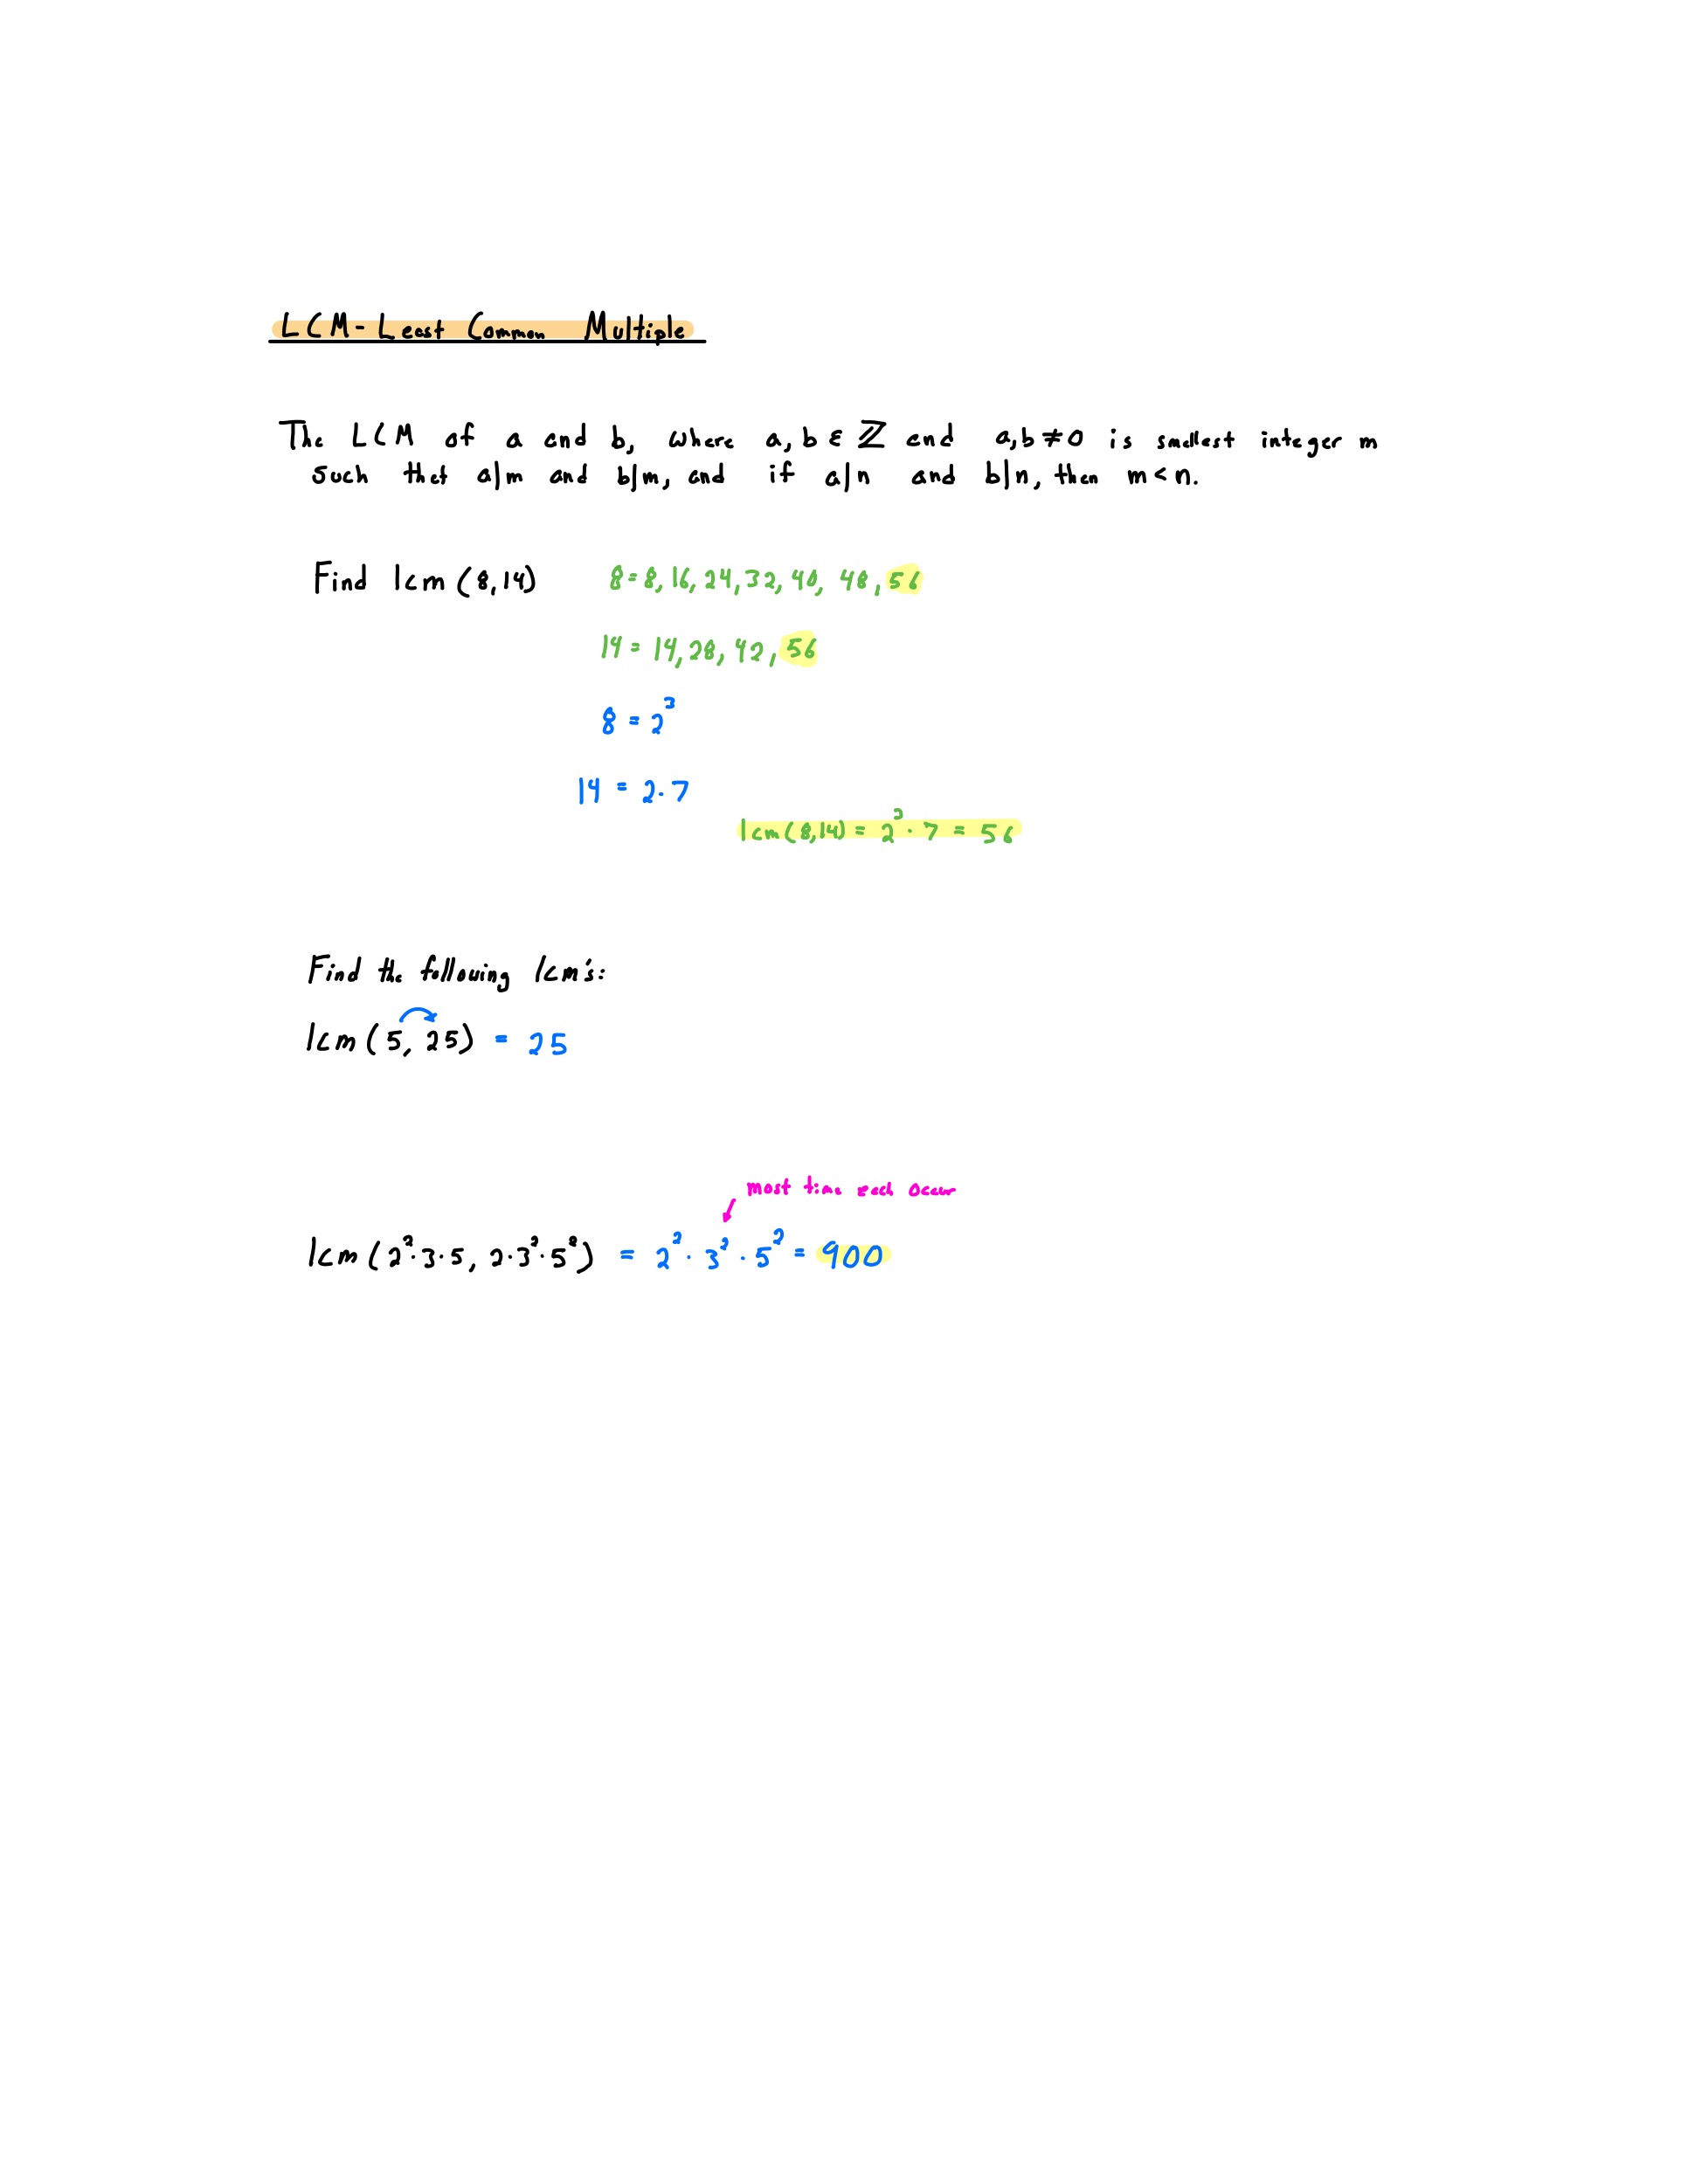 LCM - Least Common Multiple
The LCM of a and b, where a, b ε ℤ and a,b ≠ 0 is smallest integer m
such that a|m and b|m, and if a|n and b|n, then m < n.
Find lcm (8,14) 8 = 8, 16, 24, 32, 40, 48, 56
14 = 14, 28, 42, 56
8 = 2³
14 = 2·7
lcm (8,14) = 2³ · 7 = 56
Find the following lcm's:
lcm (5, 25) = 25
most time each occur
lcm (2²·3·5, 2·3²·5²) = 2² · 3² · 5² = 900